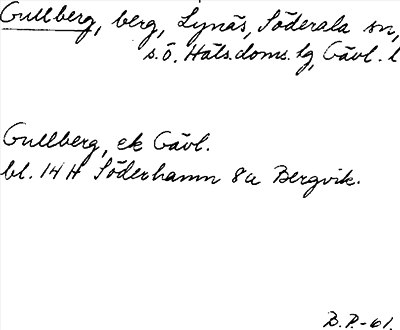 Gullberg, berg, Lynäs, Söderala sn,
s.ö. Häls.doms. lg, Gävl. l
Gullberg, ek Gävl.
bl. 14 H Söderhamn 8a Bergvik.
B.P.-61.